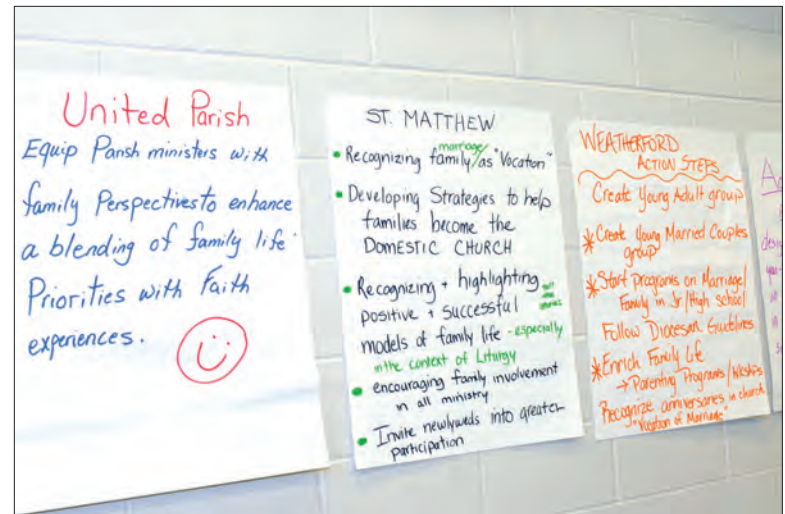 United Parish
Equip Parish ministers with
family Perspectives to enhance
a blending of family life
Priorities with Faith
experiences.
ST. MATTHEW
• Recognizing family/marriage as "Vocation"
• Developing Strategies to help
families become the
DOMESTIC CHURCH
• Recognizing + highlighting
positive + successful
models of family life - especially
in the context of Liturgy
• encouraging family involvement
in all ministry
• Invite newlyweds into greater
participation
WEATHERFORD
ACTION STEPS
Create Young Adult group
* Create Young Married Couples
group
* Start Programs on Marriage/
Family in Jr/High school
Follow Diocesan Guidelines
* Enrich Family Life
→ Parenting Programs/Wkshps
Recognize anniversaries in church
"Vocation of Marriage"